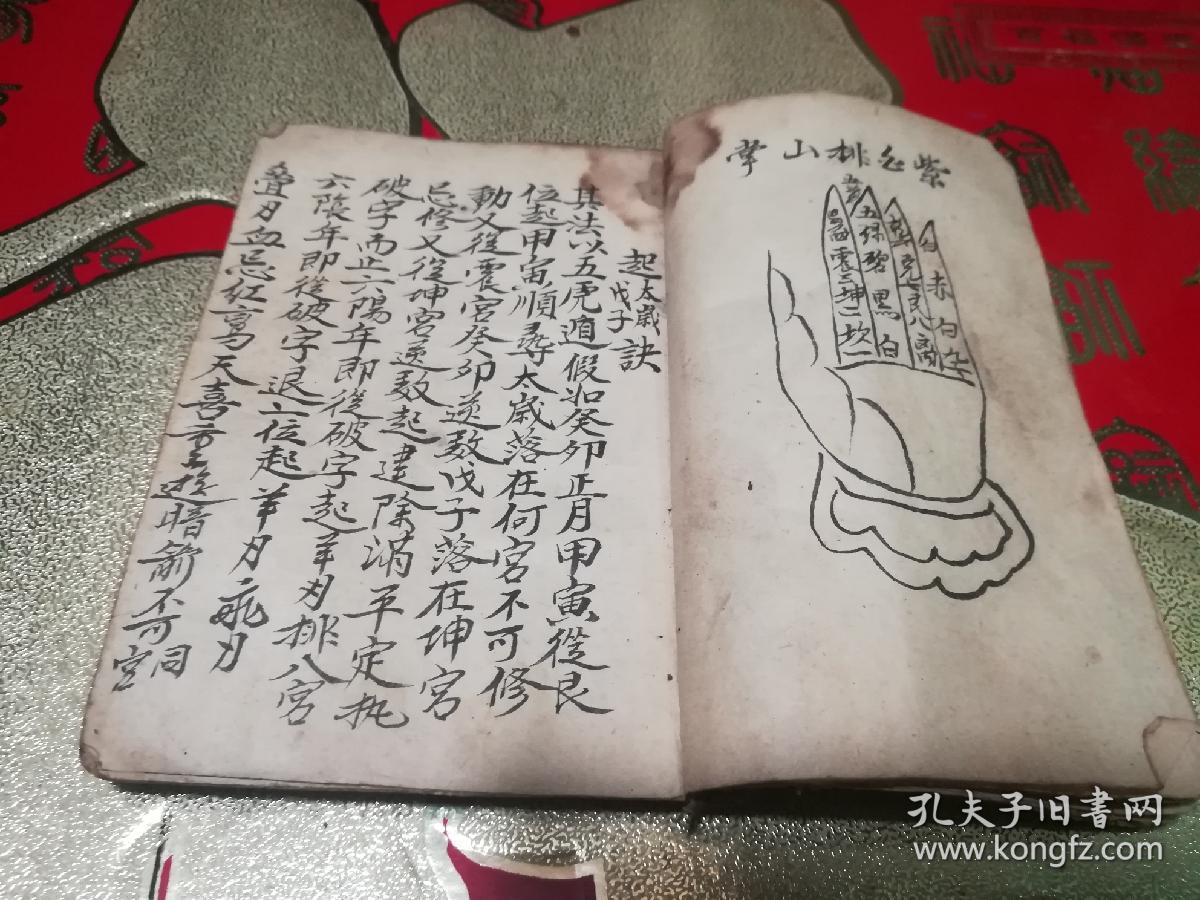 紫白排山掌
白赤白紫
乾兌七艮八離
五綠碧黑白
巽震三坤二坎一
起太歲戊子訣
其法以五虎遁假如癸卯正月甲寅從艮
位起甲寅順尋太歲落在何宮不可修
動又從震宮癸卯逆数戊子落在坤宮
忌修又從坤宮逆数起建除滿平定执
破字而止六陽年即從破字起羊刃排八宮
六陰年即從破字退六位起羊刃飛刃
疊刃血忌紅鸾天喜方上遊暗箭不可同宮
孔夫子旧書网
www.kongfz.com